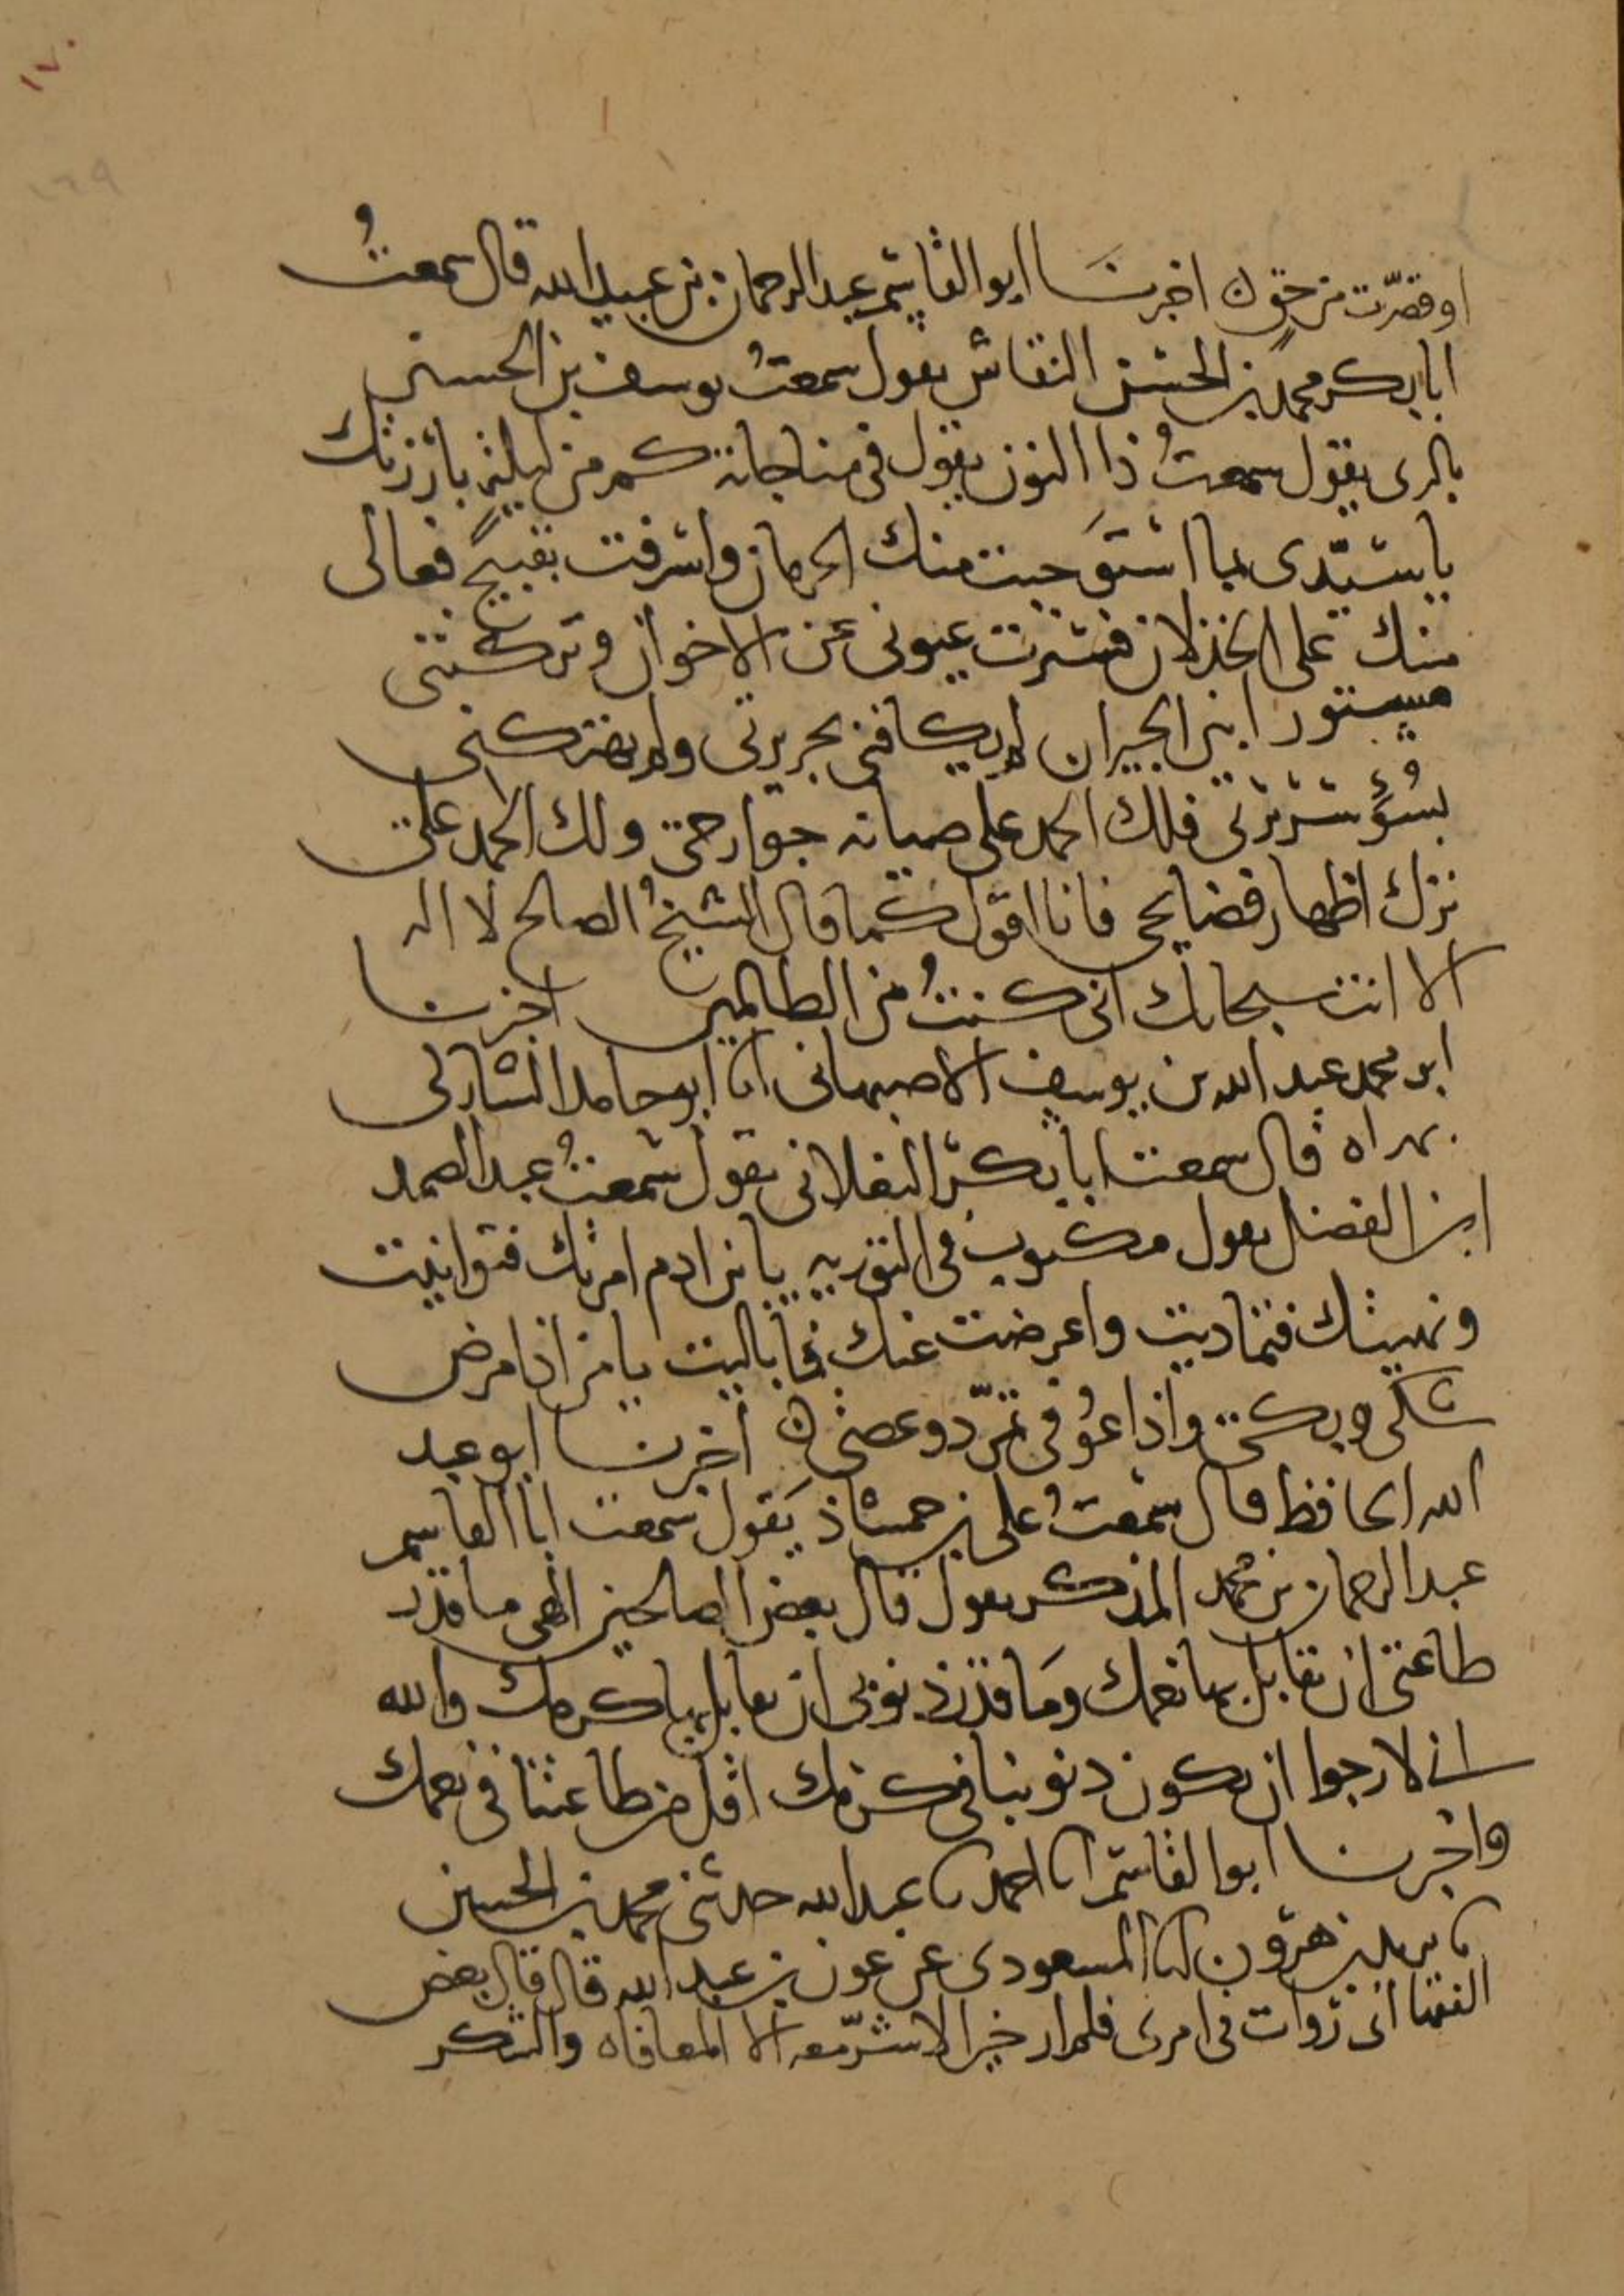 ١٧٠
١٦٩
او قصّرت من حقٍ ه اخبرنا ابو القاسم عبد الرحمان بن عبيد الله قال سمعتُ
ابا بكر محمد بن الحسن النقاش يقول سمعتُ يوسف بن الحسين
بالري يقول سمعتُ ذا النون يقول في مناجاته كم من ليلة بارزتك
يا سيّدي بما استَوجبت منك الحرمان واشرفت بقبيح فعالي
منك على الخذلان فسترت عيوبي عن الاخوان وتركتني
مستورا بين الجيران لم تكافني بجريرتي ولم تهتكني
بسُوء سريرتي فلك الحمد على صيانة جوارحي ولك الحمد على
ترك اظهار فضايحي فانا اقول كما قال الشيخُ الصالح لا اله
الا انت سبحانك اني كنتُ من الظالمين اخبرنا
ابو محمد عبد الله بن يوسف الاصبهاني انا ابو حامد الشاركي
بهراه قال سمعت ابا بكر يقول سمعتُ عبد الصمد
ابن الفضل يقول مكتوب في التوريه يا بن ادم امرتك فتوانيت
ونهيتك فتماديت واعرضت عنك فما باليت يا من اذا مرض
شكى وبكى واذا عُوفي تمرّد وعصى ه اخبرنا ابو عبد
الله الحافظ قال سمعتُ علي بن حمشاذ يَقول سمعت ابا القاسم
عبد الرحمان بن محمد المذكر يقول قال بعض الصالحين الهي ما قدر
طاعتي ان تقابل بها نعمك ومَا قدر ذنوبي ان تقابل بها كرمك والله
اني لارجوا ان يكون ذنوبنا في كرمك اقل من طاعتنا في نعمك
واخبرنا ابو القاسم انا احمد نا عبد الله حدثني محمد بن الحسين
نا يزيد بن هرون انا المسعودي عن عون بن عبد الله قال قال بعض
الفقها اني روات في امري فلم ار خيرا لا شرّ معه الا المعافاه والشكر